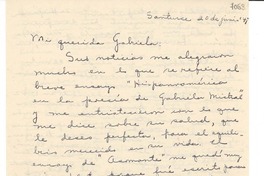 7063
Santurce 20 de junio '47
Mi querida Gabriela
Sus noticias me alegraron
mucho en lo que se refiere al
breve ensayo "Hispanoamérica
en la poesía de Gabriela Mistral"
y me entristecieron con lo que
me dice sobre su salud, que
le deseo perfecta, para el equili-
brio merecido en su vida. El
ensayo de "Asomante" me quedó muy
fué escrito para